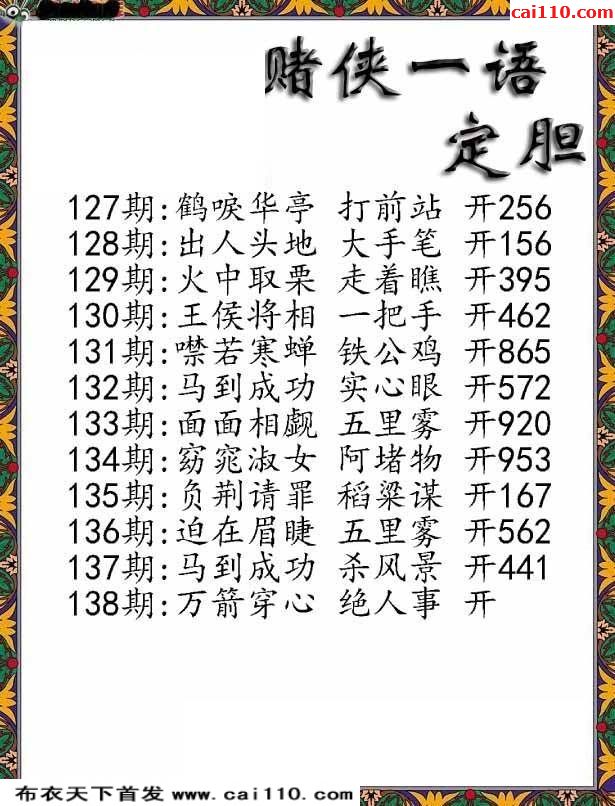 cai110.com
赌侠一语
定胆
127期:鹤唳华亭 打前站 开256
128期:出人头地 大手笔 开156
129期:火中取栗 走着瞧 开395
130期:王侯将相 一把手 开462
131期:噤若寒蝉 铁公鸡 开865
132期:马到成功 实心眼 开572
133期:面面相觑 五里雾 开920
134期:窈窕淑女 阿堵物 开953
135期:负荆请罪 稻粱谋 开167
136期:迫在眉睫 五里雾 开562
137期:马到成功 杀风景 开441
138期:万箭穿心 绝人事 开
布衣天下首发 www.cai110.com